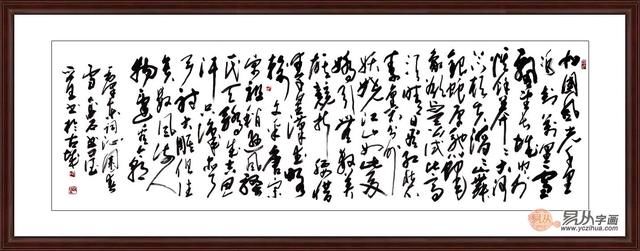 北国风光千里
冰封万里雪
飘望长城内外
惟余莽莽大河
上下顿失滔滔山舞
银蛇原驰蜡象
欲与天公试比高
须晴日看红装
素裹分外
妖娆江山如此多
娇引无数英
雄竞折腰惜
秦皇汉武略
输文采唐宗
宋祖稍逊风骚
天骄成吉思
汗只识弯
弓射大雕俱往
矣数风流人
物还看今朝
毛泽东词沁园春
雪
书于古城
易从字画
www.yczihua.com